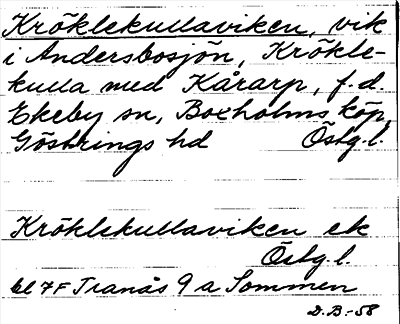 Kröklekullaviken, vik
i Andersbosjön, Krökle-
kulla med Kårarp, f.d.
Ekeby sn, Boxholms köp,
Göstrings hd Östg.l.
Kröklekullaviken ek
Östg.l.
bl 7F Tranås 9 a Sommen
D.B.-58